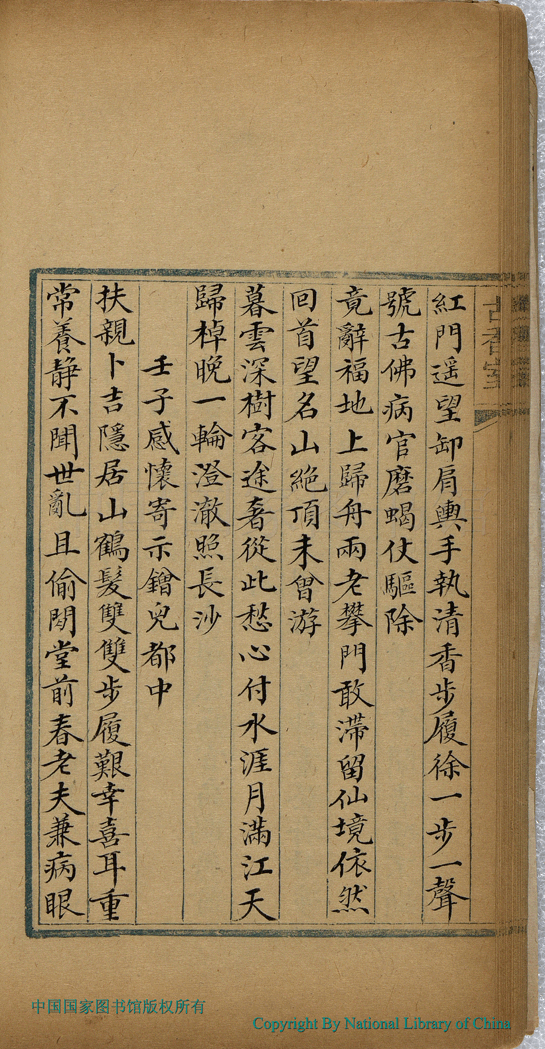 紅門遥望卸肩輿手執清香步履徐一步一聲
號古佛病官磨蝎仗驅除
竟辭福地上歸舟兩老攀門敢滯留仙境依然
回首望名山絶頂未曾游
暮雲深樹客途奢從此愁心付水涯月滿江天
歸棹晚一輪澄澈照長沙
壬子感懷寄示鏳兒都中
扶親卜吉隱居山鶴髮雙雙步履艱幸喜耳重
常養静不聞世亂且偷閒堂前春老夫兼病眼
古香室
中国国家图书馆版权所有
Copyright By National Library of China